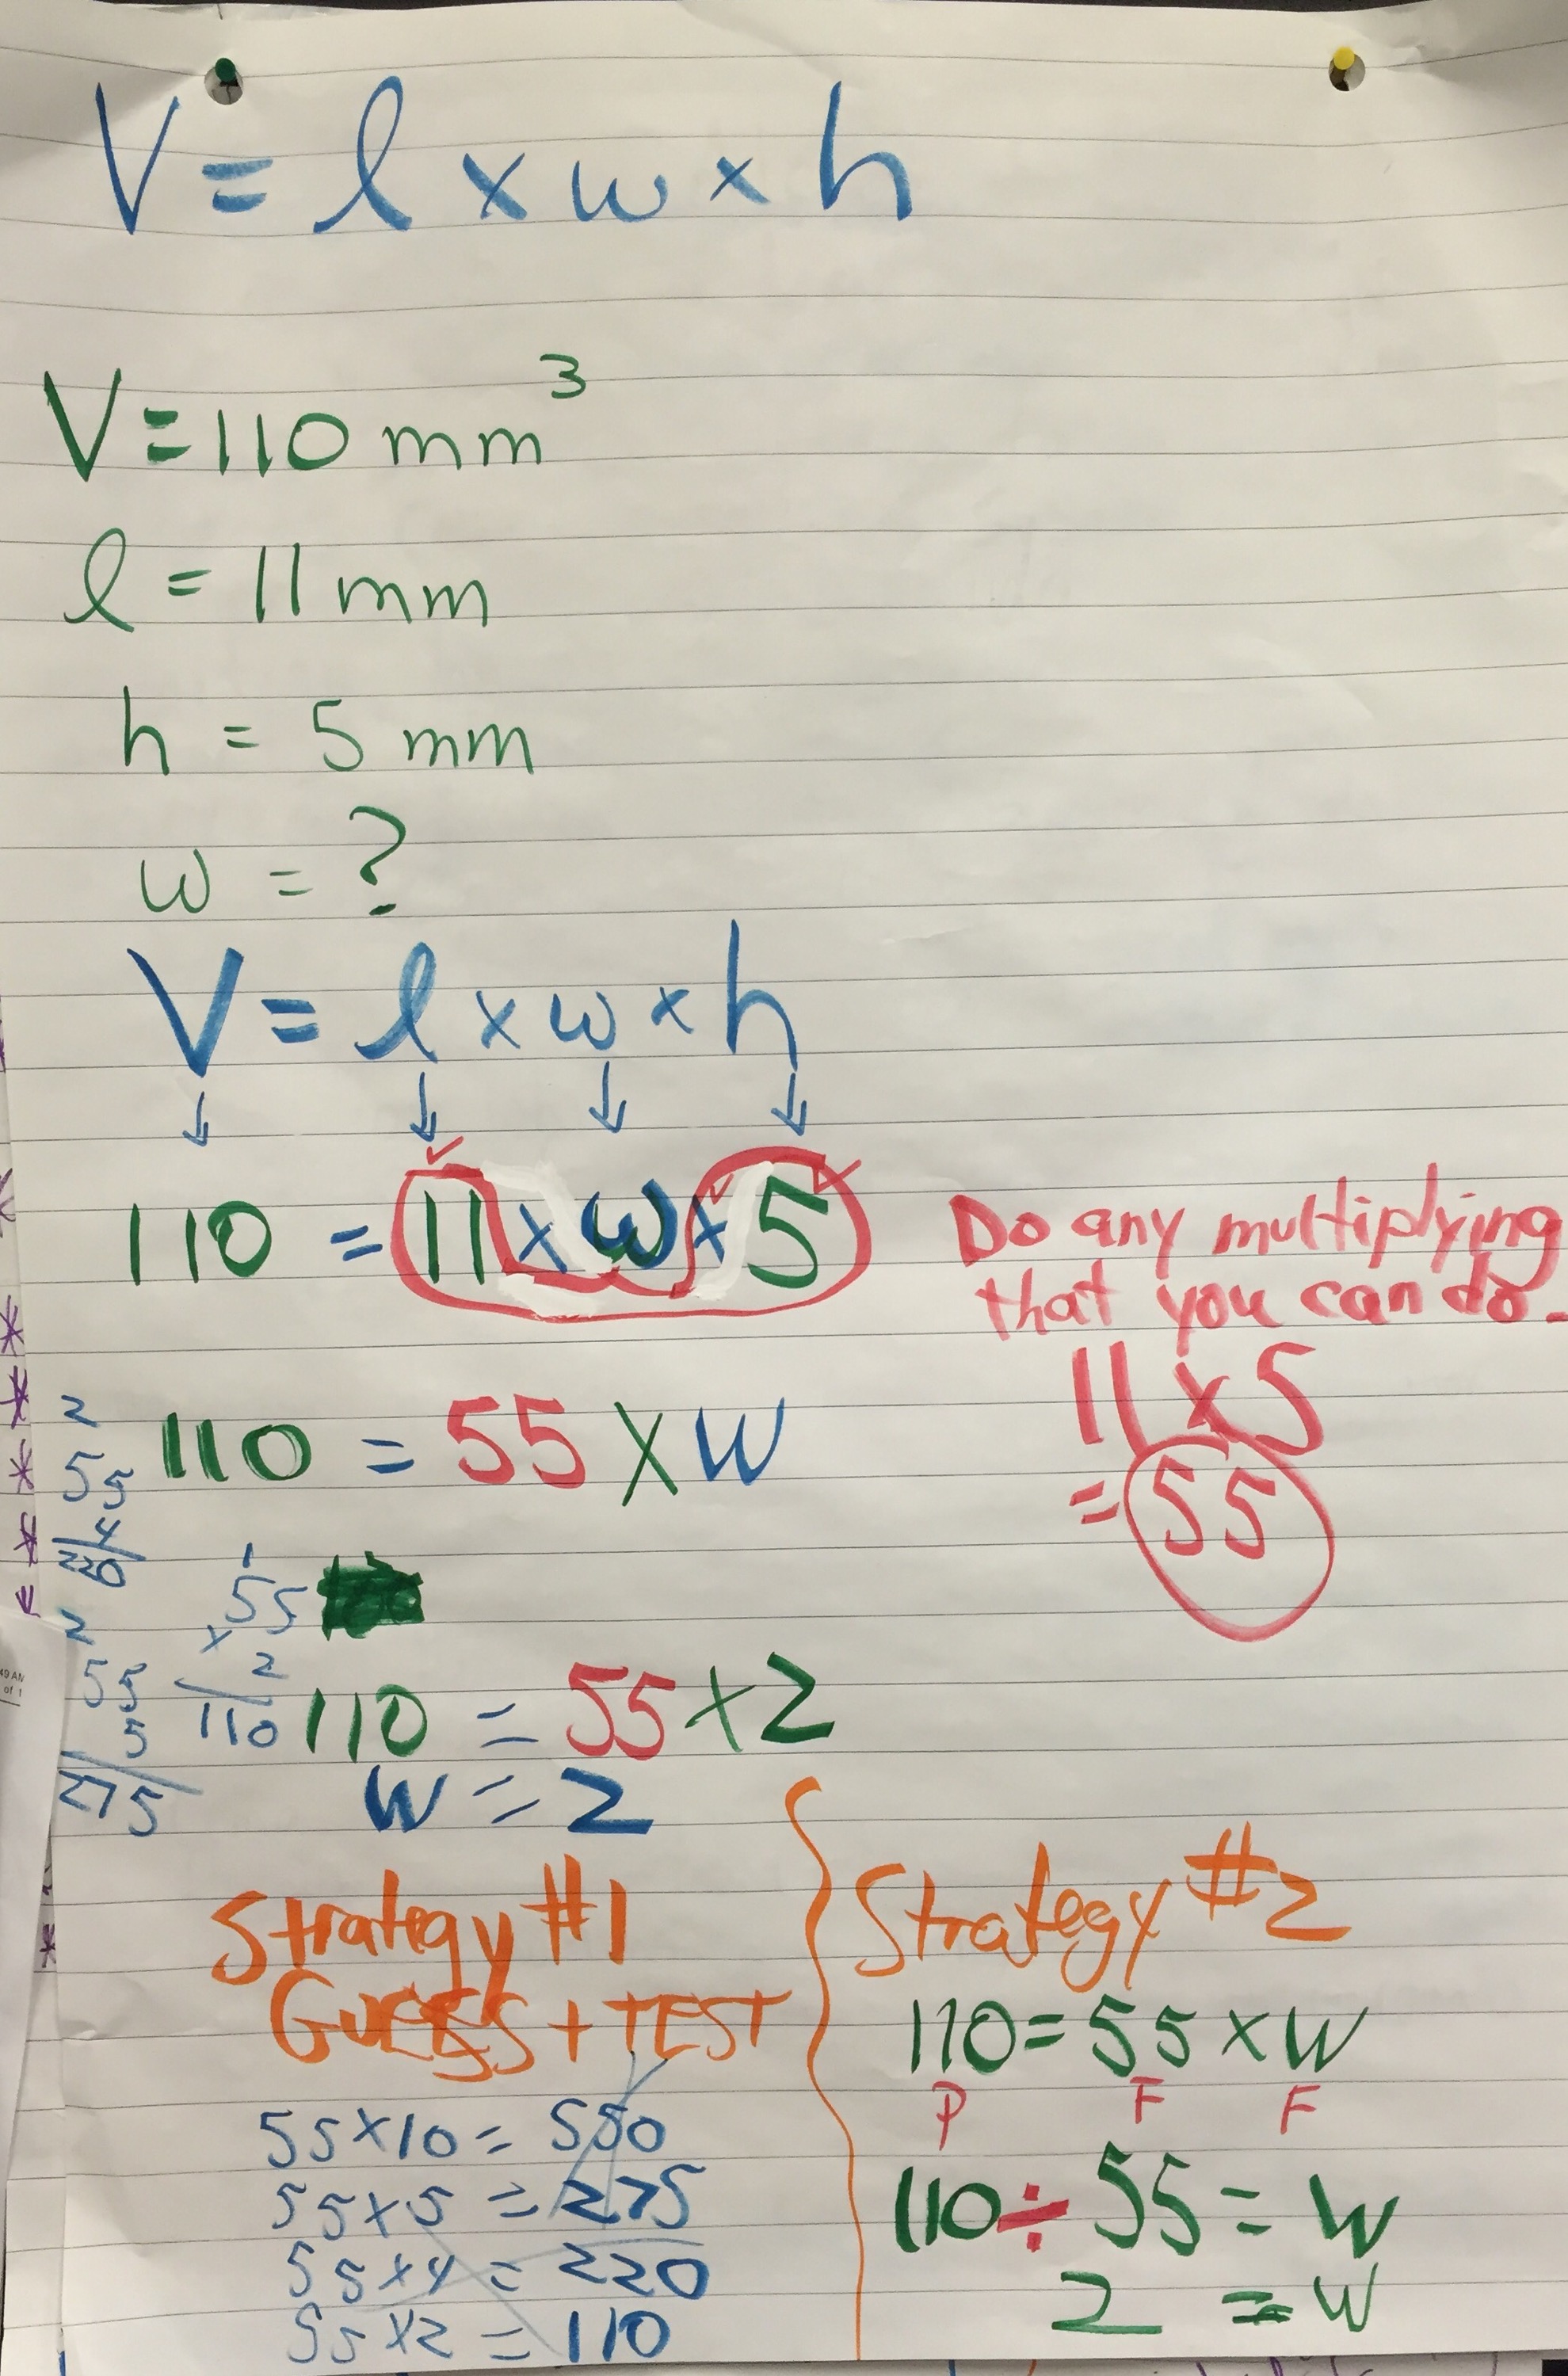 V = l x w x h
V = 110 mm³
l = 11 mm
h = 5 mm
w = ?
V = l x w x h
110 = 11 x w x 5
Do any multiplying
that you can do.
11 x 5
= 55
110 = 55 x w
2
55
x4
220
1
55
x 2
110
2
55
5
275
110 = 55 x 2
w = 2
Strategy #1
GUESS + TEST
55 x 10 = 550
55 x 5 = 275
55 x 4 = 220
55 x 2 = 110
Strategy #2
110 = 55 x w
P F F
110 ÷ 55 = w
2 = w